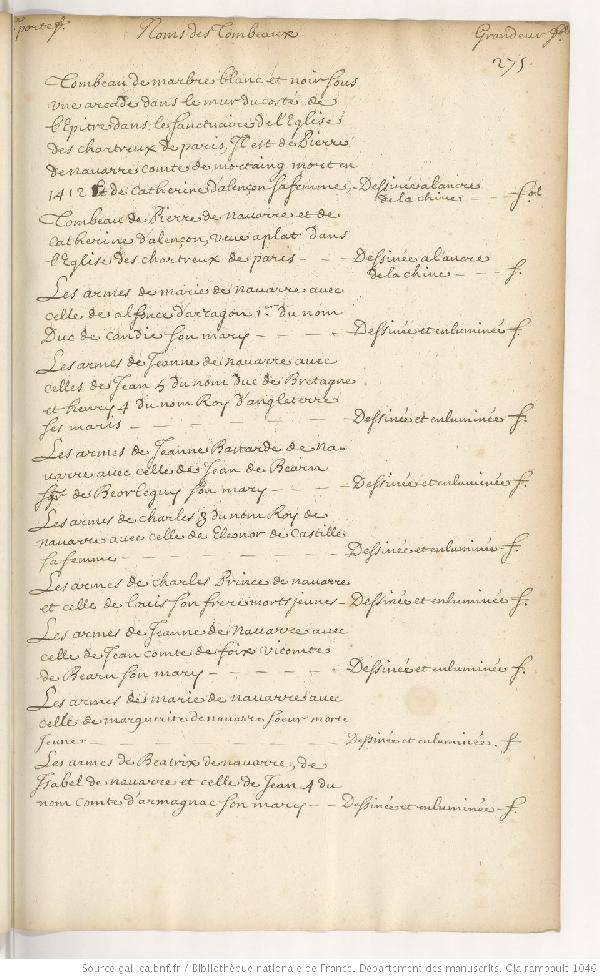 porte f. Noms des Tombeaux Grandeur fol.
275.
Tombeau de marbre blanc et noir sous
vne arcade dans le mur du costé de
l'Epitre dans le sanctuaire de l'Eglise
des chartreux de paris, Il est de Pierre
de nauarre comte de mortaing mort en
1412 Et de Catherine d'alençon sa femme, - Dessinée a l'ancre
de la chine - - fol
Tombeau de Pierre de nauarre et de
Catherine d'alençon, veue a plat dans
l'Eglise des chartreux de paris - - - Dessinée a l'ancre
de la chine - - - f.
Les armes de marie de nauarre auec
celle de alfonce d'arragon 1.er du nom
Duc de Candie son mary - - - - Dessinée et enluminée f.
Les armes de Jeanne de nauarre auec
celles de Jean 5 du nom Duc de Bretagne
et henry 4 du nom Roy d'angleterre
ses maris - - - - - - - - Dessinée et enluminée f.
Les armes de Jeanne Bastarde de na-
uarre auec celle de Jean de Bearn
sgr. de Beorleguy son mary - - - - Dessinée et enluminée f.
Les armes de charles 3 du nom Roy de
nauarre auec celle de Eleonor de Castille
sa femme - - - - - - - Dessinée et enluminée f.
Les armes de charles Prince de nauarre
et celle de louis son frere morts jeunes - Dessinée et enluminée f.
Les armes de Jeanne de Nauarre auec
celle de Jean comte de foix vicomte
de Bearn son mary - - - - - - Dessinée et enluminée f.
Les armes de marie de nauarre auec
celle de marguerite de nauarre soeur morte
jeune - - - - - - - - Dessinée et enluminée. f
Les armes de Beatrix de nauarre, de
Isabel de nauarre et celle de Jean 4 du
nom Comte d'armagnac son mary - - Dessinée et enluminée - f.
Source gallica.bnf.fr / Bibliothèque nationale de France. Département des manuscrits. Clairambault 1046